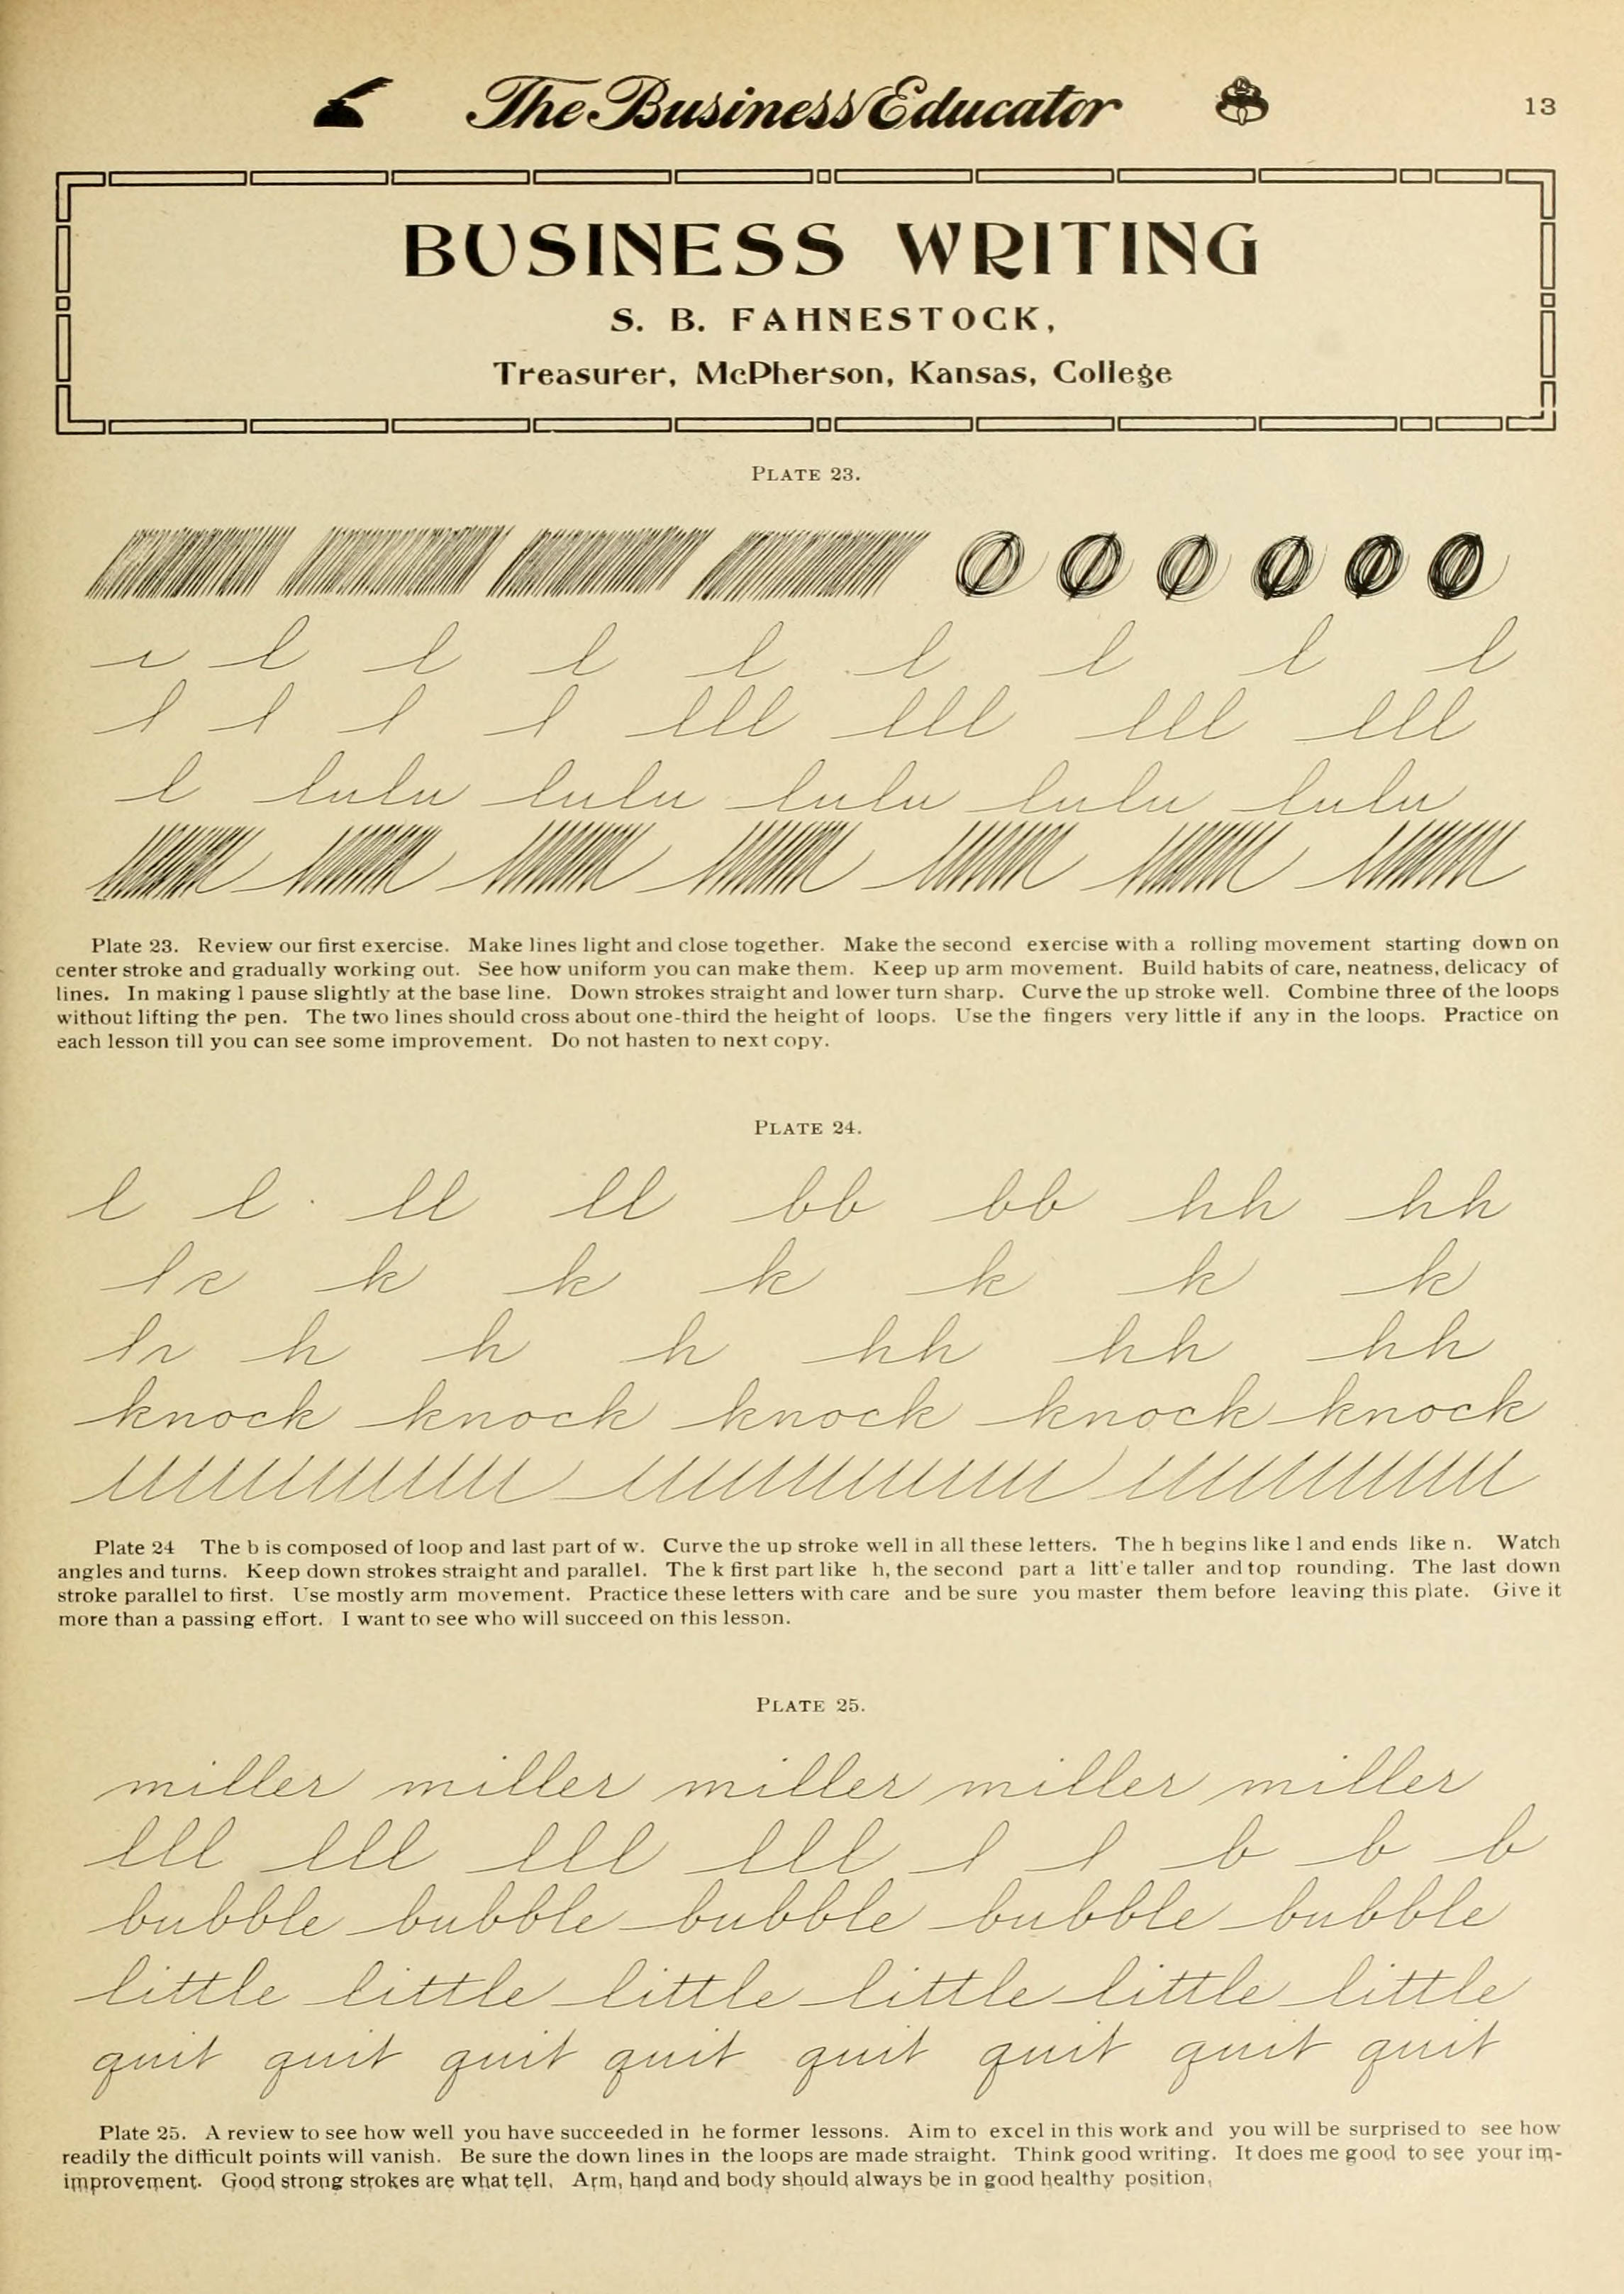 The Business Educator
13
BUSINESS WRITING
S. B. FAHNESTOCK,
Treasurer, McPherson, Kansas, College
PLATE 23.
l l l l l l l l
l l l l lll lll lll lll
l lulu lulu lulu lulu lulu
Plate 23. Review our first exercise. Make lines light and close together. Make the second exercise with a rolling movement starting down on
center stroke and gradually working out. See how uniform you can make them. Keep up arm movement. Build habits of care, neatness, delicacy of
lines. In making l pause slightly at the base line. Down strokes straight and lower turn sharp. Curve the up stroke well. Combine three of the loops
without lifting the pen. The two lines should cross about one-third the height of loops. Use the fingers very little if any in the loops. Practice on
each lesson till you can see some improvement. Do not hasten to next copy.
PLATE 24.
l l ll ll bb bb hh hh
k k k k k k
h h h hh hh hh
knock knock knock knock knock
Plate 24 The b is composed of loop and last part of w. Curve the up stroke well in all these letters. The h begins like l and ends like n. Watch
angles and turns. Keep down strokes straight and parallel. The k first part like h, the second part a litt'e taller and top rounding. The last down
stroke parallel to first. Use mostly arm movement. Practice these letters with care and be sure you master them before leaving this plate. Give it
more than a passing effort. I want to see who will succeed on this lesson.
PLATE 25.
miller miller miller miller miller
lll lll lll lll l l b b b
bubble bubble bubble bubble bubble
little little little little little little
quit quit quit quit quit quit quit quit
Plate 25. A review to see how well you have succeeded in he former lessons. Aim to excel in this work and you will be surprised to see how
readily the difficult points will vanish. Be sure the down lines in the loops are made straight. Think good writing. It does me good to see your im-
improvement. Good strong strokes are what tell, Arm, hand and body should always be in good healthy position,